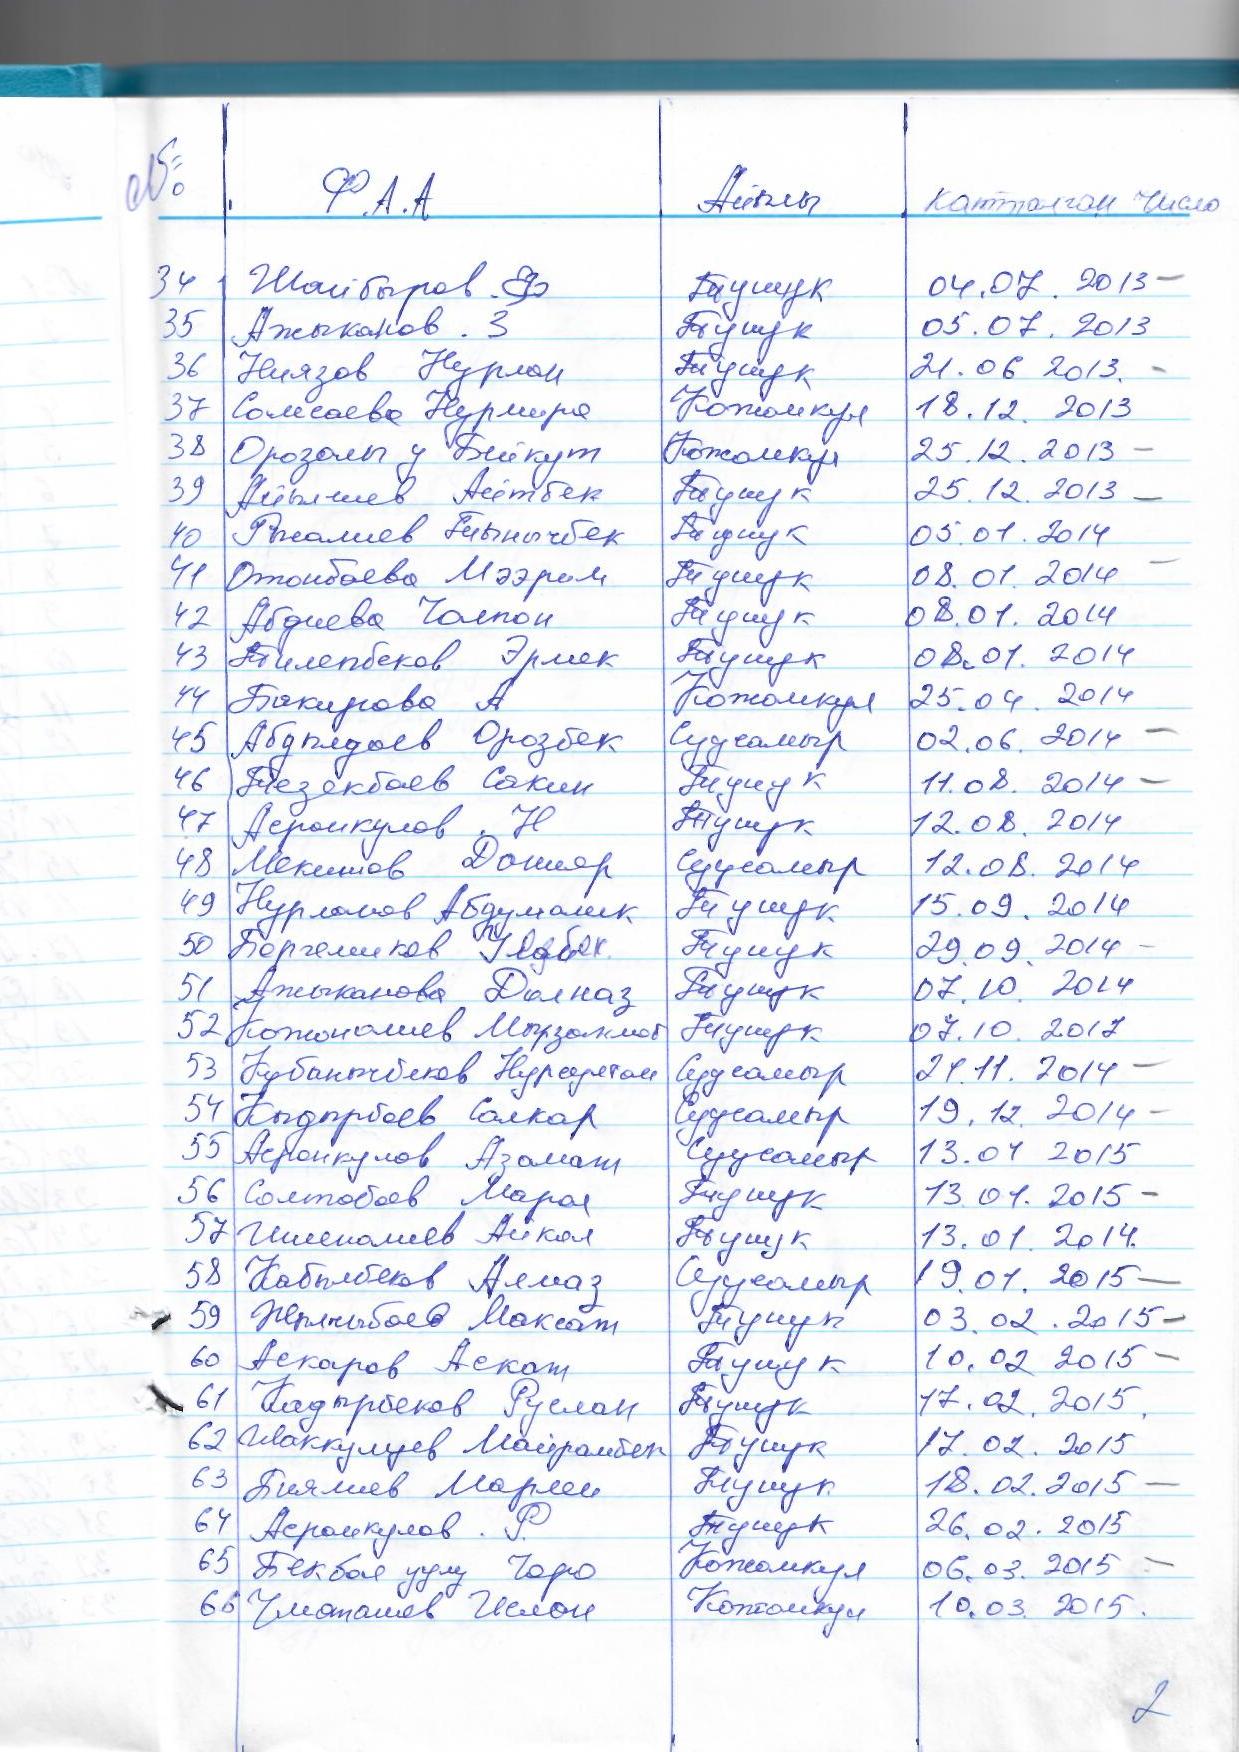 № Ф.А.А Айылы Катталган число
34 Шайбыров . Ф Тунук 04.07. 2013 –
35 Ажыканов . З Тунук 05.07. 2013
36 Ниязов Нурлан Тунук 21.06 2013. -
37 Солисаева Нурмира Кожомкул 18.12. 2013
38 Орозалы у Бийкут Кожомкул 25.12.2013 –
39 Айылчиев Айтбек Тунук 25.12.2013 –
40 Рыслиев Тынычбек Тунук 05.01.2014
41 Отонбаева Мээрим Тунук 08.01.2014 –
42 Абдиева Чолпон Тунук 08.01.2014
43 Тилепбеков Эрмек Тунук 08.01.2014
44 Бакирова А Кожомкул 25.04.2014
45 Абдылдаев Орозбек Суусамыр 02.06.2014 –
46 Тезекбаев Сакин Тунук 11.08.2014 –
47 Асранкулов . Н Тунук 12.08.2014
48 Мекишов Данияр Суусамыр 12.08.2014
49 Нурланов Абдумалик Тунук 15.09.2014
50 Борчеминов Тунук 29.09.2014 –
51 Ажыканова Дилназ Тунук 07.10.2014
52 Кожоналиев Мырзакмат Тунук 07.10.2017
53 Кубанычбеков Нурсултан Суусамыр 21.11.2014 –
54 Кыдырбаев Салкар Суусамыр 19.12.2014 –
55 Асранкулов Азамат Суусамыр 13.01 2015
56 Солтобаев Марал Тунук 13.01.2015 –
57 Ишеналиев Айкол Тунук 13.01.2014.
58 Кабылбеков Алмаз Суусамыр 19.01.2015 –
59 Максат Тунук 03.02.2015 –
60 Аскаров Аскат Тунук 10.02 2015 –
61 Кадырбеков Руслан Тунук 17.02.2015.
62 Шаккулуев Майрамбек Тунук 17.02.2015
63 Биялиев Марлен Тунук 18.02.2015 –
64 Асранкулов . Р. Тунук 26.02.2015
65 Бекбол уулу Чоро Кожомкул 06.03.2015 –
66 Чматашев Ислан Кожомкул 10.03.2015.
2